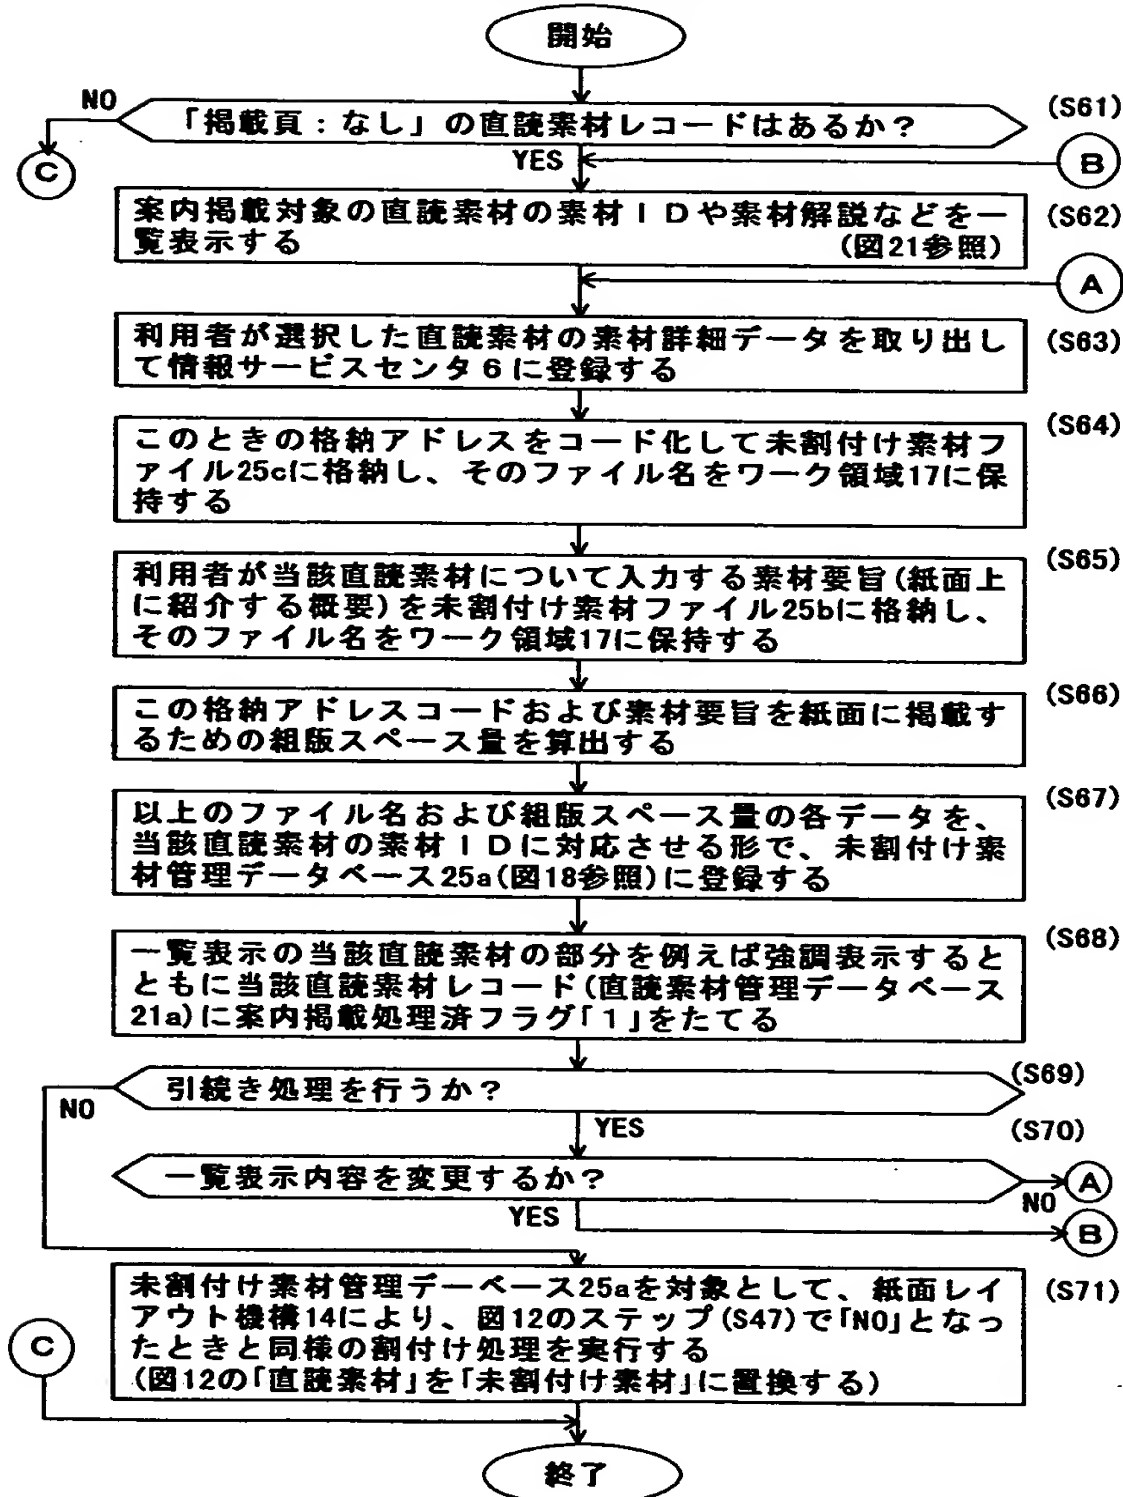 開始
NO
「掲載頁：なし」の直読素材レコードはあるか？
(S61)
C
YES
B
案内掲載対象の直読素材の素材ＩＤや素材解説などを一
覧表示する (図21参照)
(S62)
A
利用者が選択した直読素材の素材詳細データを取り出し
て情報サービスセンタ６に登録する
(S63)
このときの格納アドレスをコード化して未割付け素材フ
ァイル25cに格納し、そのファイル名をワーク領域17に保
持する
(S64)
利用者が当該直読素材について入力する素材要旨(紙面上
に紹介する概要)を未割付け素材ファイル25bに格納し、
そのファイル名をワーク領域17に保持する
(S65)
この格納アドレスコードおよび素材要旨を紙面に掲載す
るための組版スペース量を算出する
(S66)
以上のファイル名および組版スペース量の各データを、
当該直読素材の素材ＩＤに対応させる形で、未割付け素
材管理データベース25a(図18参照)に登録する
(S67)
一覧表示の当該直読素材の部分を例えば強調表示すると
ともに当該直読素材レコード(直読素材管理データベース
21a)に案内掲載処理済フラグ「１」をたてる
(S68)
引続き処理を行うか？
(S69)
NO
YES
(S70)
一覧表示内容を変更するか？
A
NO
YES
B
未割付け素材管理デーベース25aを対象として、紙面レイ
アウト機構14により、図12のステップ(S47)で「NO」となっ
たときと同様の割付け処理を実行する
(図12の「直読素材」を「未割付け素材」に置換する)
(S71)
C
終了